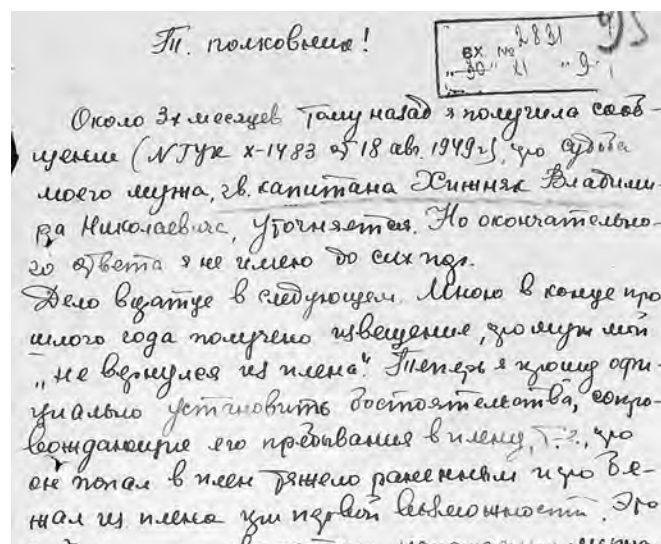 Т. полковник!
2831
ВХ. №
"30" XI "9"
95
Около 3х месяцев тому назад я получила сооб-
щение (NТУК х-1483 от 18 авг. 1949г), что судьба
моего мужа, гв. капитана Хижняк Владими-
ра Николаевича, уточняется. Но окончательно-
го ответа я не имею до сих пор.
Дело вкратце в следующем. Мною в конце про
шлого года получено извещение, что муж мой
„не вернулся из плена". Теперь я прошу офи-
циально установить обстоятельства, сопро-
вождающие его пребывания в плену, т.е., что
он попал в плен тяжело раненным и что бе-
жал из плена при первой возможности. Это